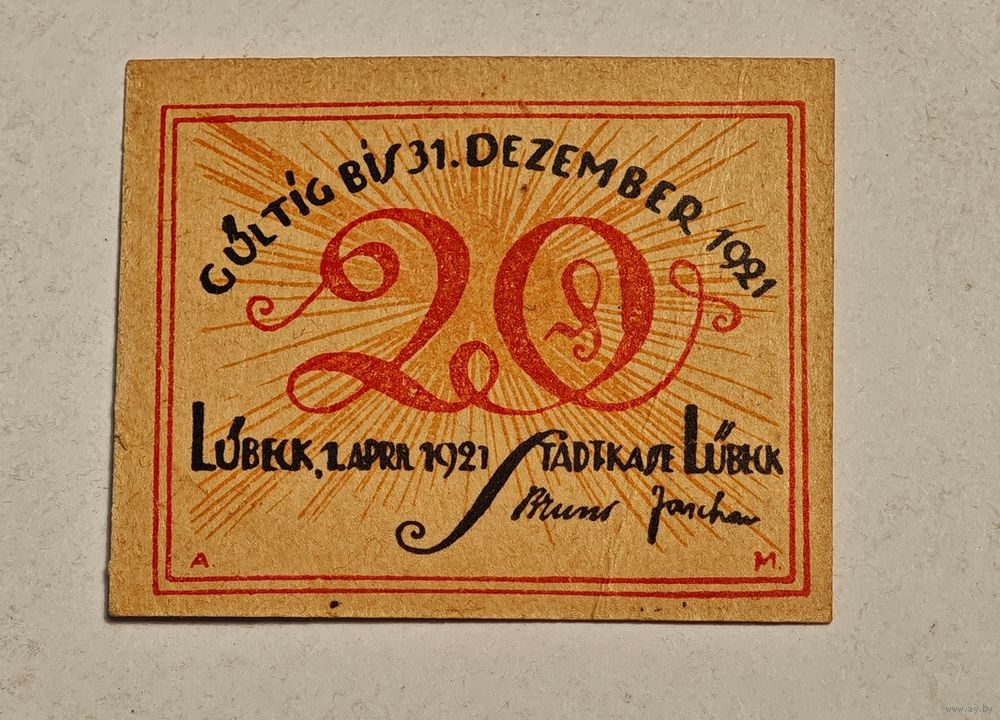 GÜLTIG BIS 31. DEZEMBER 1921
20
LÜBECK, 1. APRIL 1921 STADTKASSE LÜBECK
Bruns Jaschau
A. M.
www.ay.by